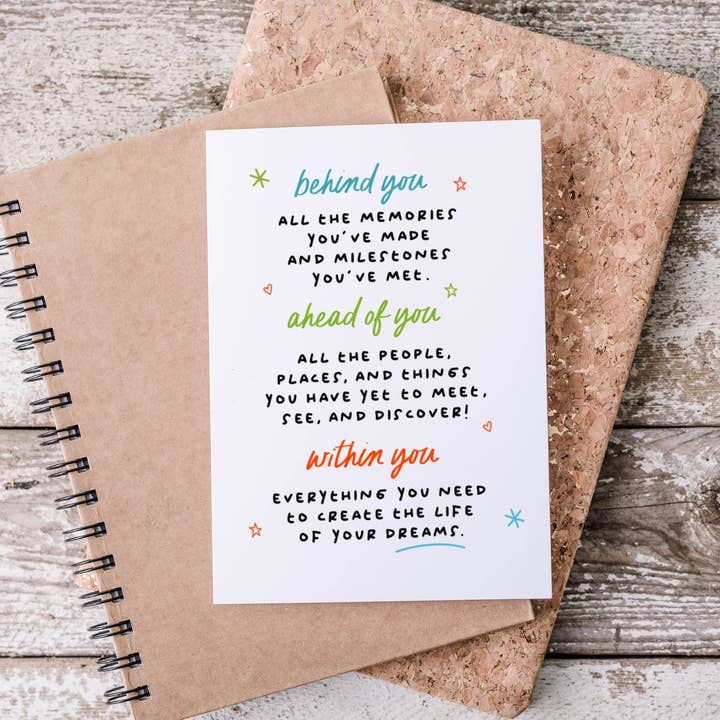 behind you
ALL THE MEMORIES
YOU'VE MADE
AND MILESTONES
YOU'VE MET.
ahead of you
ALL THE PEOPLE,
PLACES, AND THINGS
YOU HAVE YET TO MEET,
SEE, AND DISCOVER!
within you
EVERYTHING YOU NEED
TO CREATE THE LIFE
OF YOUR DREAMS.